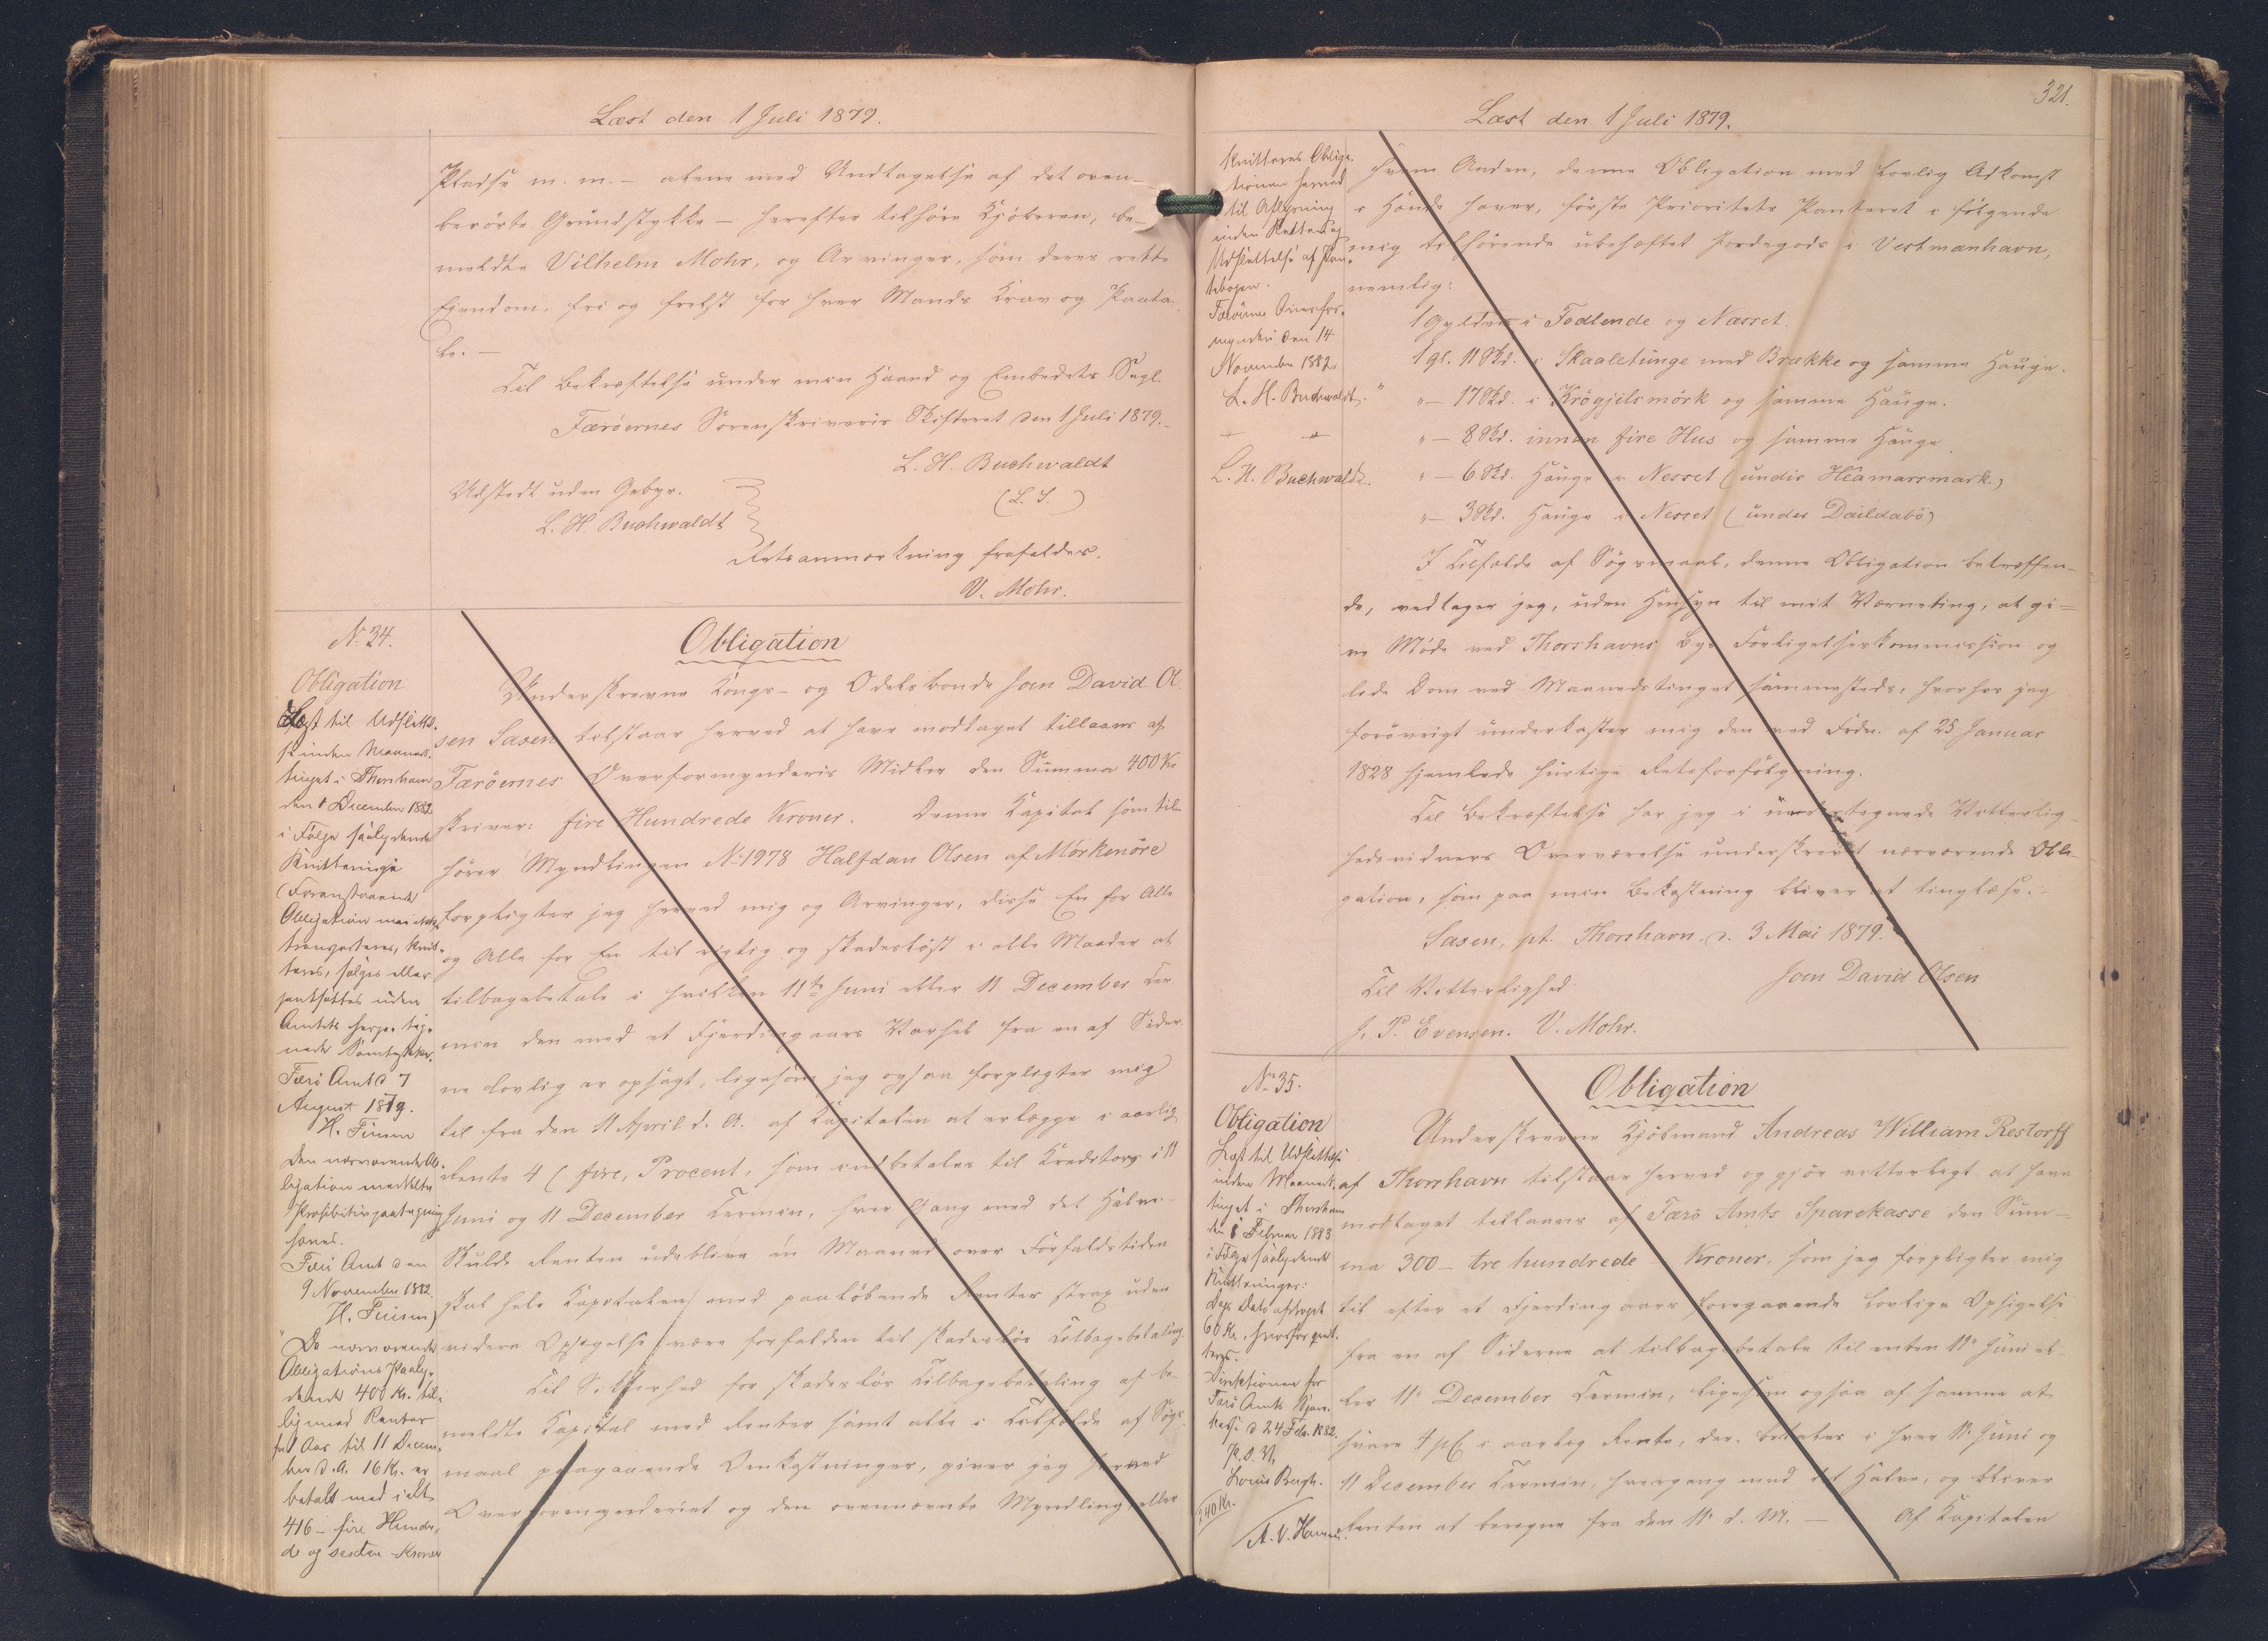 Læst den 1 Juli 1879.
Pladse m. m. – alene med Undtagelse af det oven-
berörte Grundstykke – herefter tilhöre Kjöberen, be-
meldte Vilhelm Mohr, og Arvinger, som deres rette
Ejendom, fri og frelst for hver Mands Krav og Paata-
le. –
Til Bekræftelse under min Haand og Embedets Segl.
Færöernes Sorenskriveris Skifteret den 1 Juli 1879.
L. H. Buchwaldt
(L. S.)
Udstedt uden Gebyr.
L. H. Buchwaldt
Retsanmærkning frafaldes.
V. Mohr.
No 34.
Obligation
Læst til Udslettel-
se inden Maaneds-
tinget i Thorshavn
den 1 December 1882
i Fölge saalydende
Kvitteringer
(Foranstaaende
Obligation maa ikke
transporteres, kvit-
teres, sælges eller
pantsættes uden
Amtets herpaa teg-
nede Samtykke.
Færö Amt d 7
August 1879.
H. Finsen
Den nærværende Ob-
ligation meddelte
Prohibitivpaategning
hæves.
Færö Amt den
9 November 1882.
H. Finsen)
"Da nærværende
Obligations Paaly-
dende 400 Kr. til-
ligemed Renter
for 1 Aar til 11 Decem-
ber d. A. 16 Kr. er
betalt med ialt
416 – fire Hundre-
de og sexten – Kroner
Obligation
Underskrevne Kongs- og Odelsbonde Joen David Ol
sen Saxen tilstaar herved at have modtaget tillaans af
Færöernes Overformynderis Midler den Summa 400 Kr
skriver: fire Hundrede Kroner. Denne Kapital som til-
hörer Myndlingen No 1978 Halfdan Olsen af Mörkenöre
forpligter jeg herved mig og Arvinger, disse En for Alle
og Alle for En til rigtig og skadeslöst i alle Maader at
tilbagebetale i hvilken 11te Juni eller 11 December Ter
min den med et Fjerdingaars Varsel fra en af Sider-
ne lovlig er opsagt, ligesom jeg ogsaa forpligter mig
til fra den 11 April d. A. af Kapitalen at erlægge i aarlig
Rente 4 (fire) Procent, som indbetales til Kreditor i 11
Juni og 11 December Termin, hver Gang med det Halve.
Skulde Renten udeblive en Maaned over Forfaldstiden
skal hele Kapitalen med paalöbende Renter strax uden
videre Opsigelse være forfalden til skadeslös Tilbagebetaling.
Til Sikkerhed for skadeslös Tilbagebetaling af be-
meldte Kapital med Renter samt alle i Tilfælde af Sögs-
maal paagaaende Omkostninger, giver jeg herved
Overformynderiet og den ovennævnte Myndling, eller
321.
Læst den 1 Juli 1879.
kvitteres Obliga-
tionen herved
til Aflysning
inden Retten og
Udslettelse af Pan-
tebogen.
Færöernes Overfor-
mynderi den 14
November 1882
L. H. Buchwaldt."
L. H. Buchwaldt.
hvem Anden, denne Obligation med lovlig Adkomst
i Hænde haver, förste Prioritets Panteret i fölgende
mig tilhörende ubehæftet Jordegods i Vestmanhavn,
nemlig:
1 Gylden i Fodlende og Næsset.
1 gl. 11 Skd. i Skaaletunge med Brække og samme Hauge.
" – 17 Skd. i Krögjilsmörk og samme Hauge.
" – 8 Skd. innan fire Hus og samme Hauge
" – 6 Skd. Hauge i Nesset (undir Heamarsmark.)
" – 3 Skd. Hauge i Nesset (under Daildabö)
I Tilfælde af Sögsmaal, denne Obligation betræffen-
de, vedtager jeg, uden Hensyn til mit Værneting, at gi-
ve Möde ved Thorshavns Bys Forligelseskommission og
lide Dom ved Maanedstinget sammesteds, hvorhos jeg
forövrigt underkaster mig den ved Frdn. af 25 Januar
1828 hjemlede hurtige Retsforfölgning.
Til Bekræftelse har jeg i undertegnede Vitterlig-
hedsvidners Overværelse underskrevet nærværende Obli-
gation, som paa min Bekostning bliver at tinglæse. –
Saxen, pt. Thorshavn d. 3 Mai 1879.
Joen David Olsen
Til Vitterlighed
J. P. Evensen. V. Mohr.
No 35.
Obligation
Læst til Udslettelse
inden Maaneds-
tinget i Thorshavn
den 1 Februar 1883
i Fölge saalydende
Kvitteringer:
Dags Dato afdraget
60 Kr., hvorfor qvit-
teres.
Direktionen for
Færö Amts Spare-
kasse d 24 Febr. 1882.
Louis Bergh.
240 Kr.
A. V. Hansen.
Obligation
Underskrevne Kjöbmand Andreas William Restorff
af Thorshavn tilstaar herved og gjör vitterligt at have
modtaget tillaans af Færö Amts Sparekasse den Sum-
ma 300 – tre hundrede – Kroner, som jeg forpligter mig
til efter et Fjerdingaars foregaaende lovlige Opsigelse
fra en af Siderne at tilbagebetale til enten 11te Juni el-
ler 11te December Termin, ligesom ogsaa af samme at
svare 4 pCt i aarlig Rente, der betales i hver 11te Juni og
11 December Termin, hvergang med det Halve, og bliver
Renten at beregne fra den 11te d. M. – Af Kapitalen